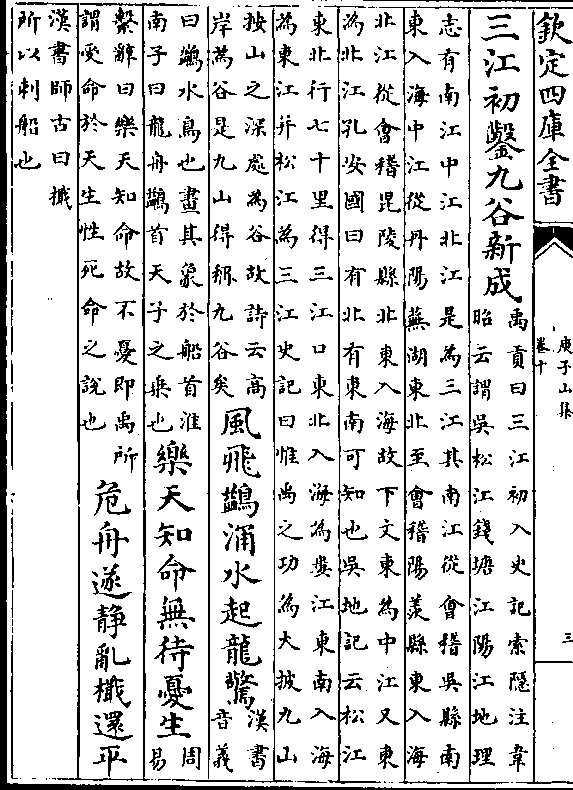 欽定四庫全書
庚子山集
卷十
三
三江初鑿九谷新成
禹貢曰三江初入史記索隠注韋
昭云謂吳松江錢塘江陽江地理
志有南江中江北江是為三江其南江從會稽吳縣南
東入海中江從丹陽蕪湖東北至會稽陽羨縣東入海
北江從會稽毘陵縣北東入海故下文東為中江又東
為北江孔安國曰有北有東南可知也吳地記云松江
東北行七十里得三江口東北入海為婁江東南入海
為東江并松江為三江史記曰惟禹之功為大披九山
按山之深處為谷故詩云高
岸為谷是九山得稱九谷矣
風飛鷁涌水起龍驚
漢書
音義
曰鷁水鳥也畫其象於船首淮
南子曰龍舟鷁首天子之乗也
樂天知命無待憂生
周
易
繫辭曰樂天知命故不憂即禹所
謂受命於天生性死命之說也
危舟遂静亂檝還平
漢書師古曰檝
所以刺船也